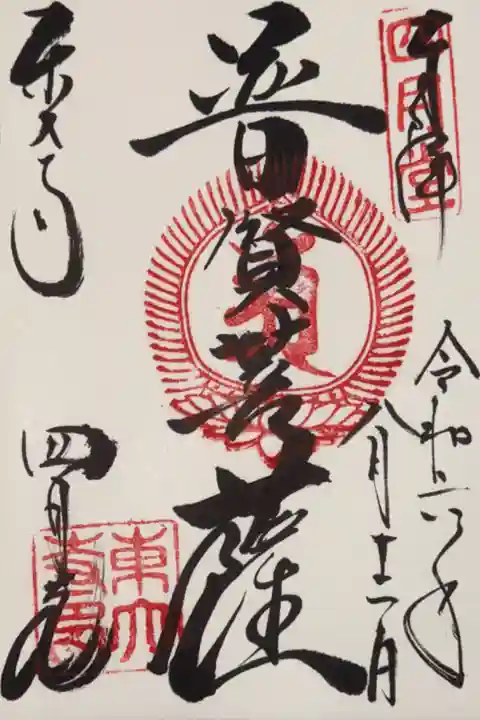 四月堂
奉拝
令和六年
八月十二日
普賢菩薩
東大寺
四月堂
東大